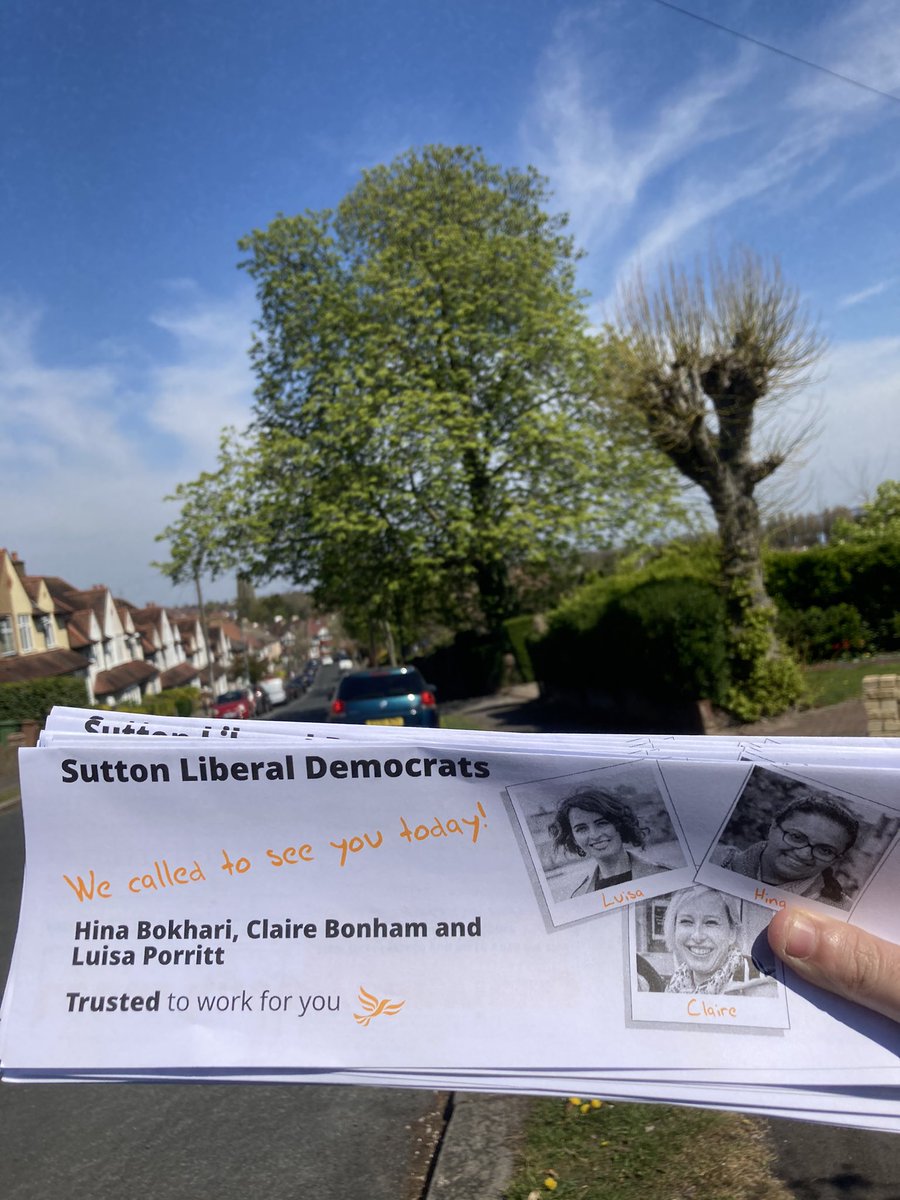 Sutton Lib
Sutton Liberal Democrats
We called to see you today!
Hina Bokhari, Claire Bonham and
Luisa Porritt
Trusted to work for you
Luisa
Hina
Claire